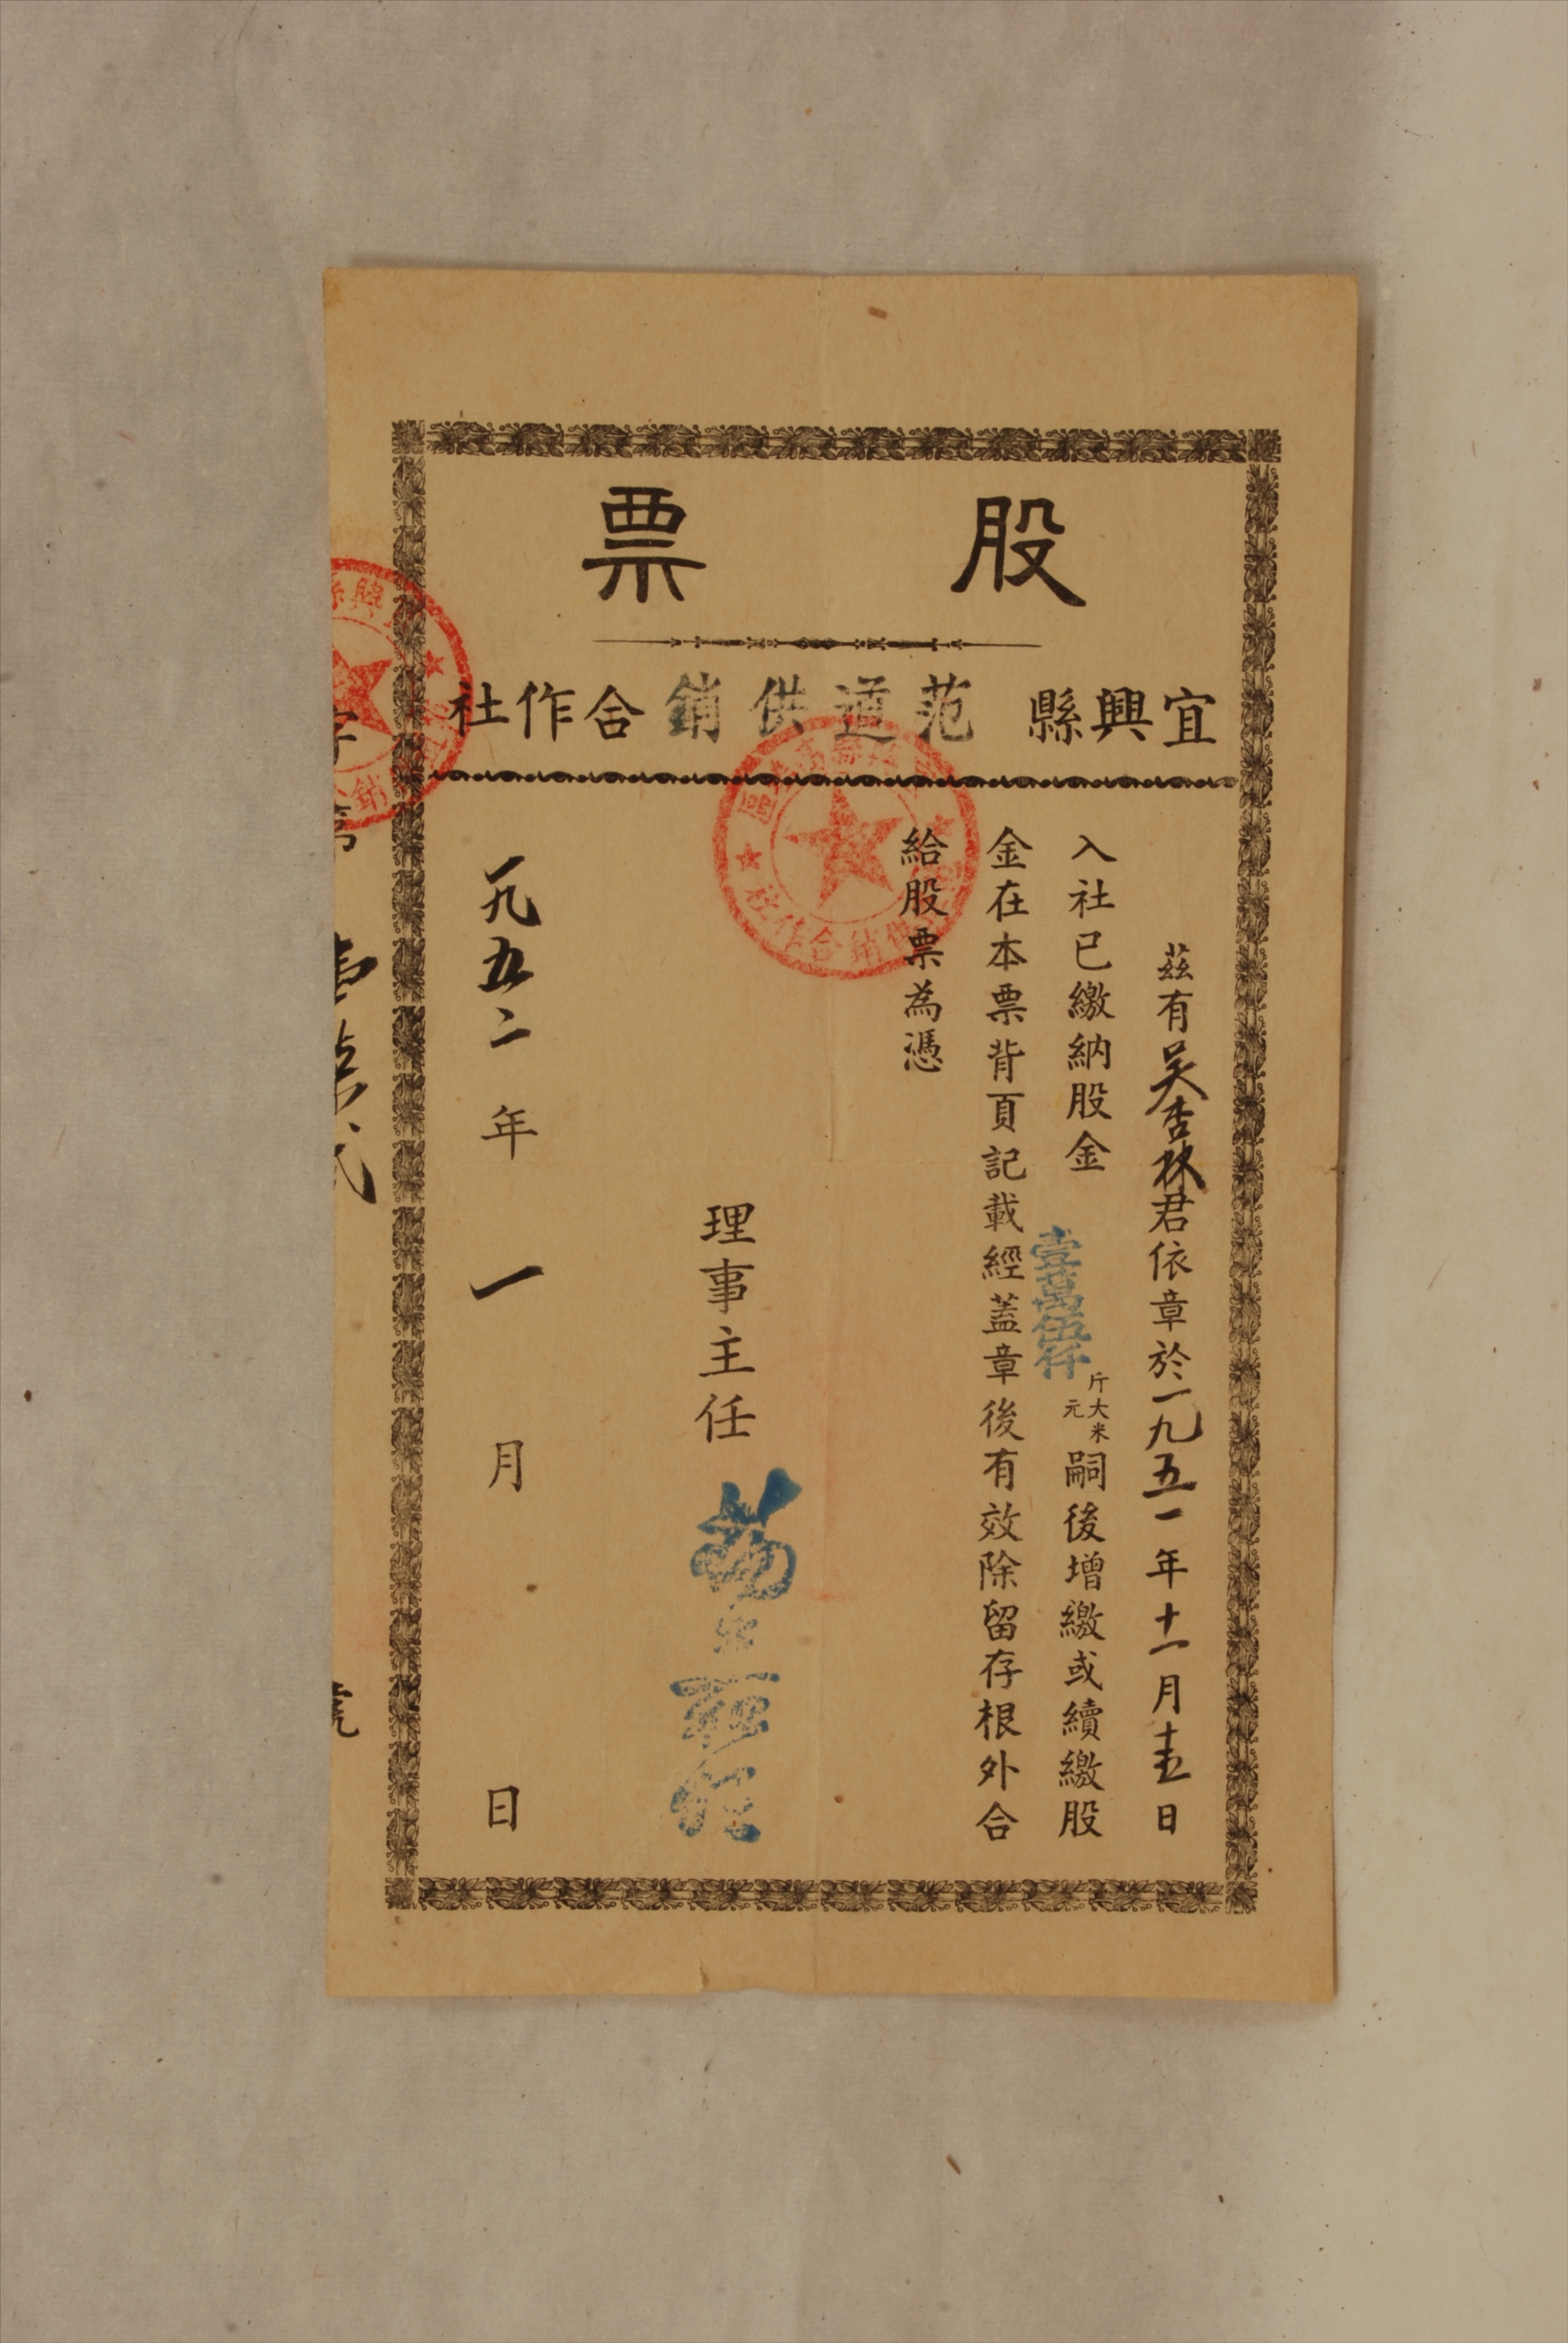 股票
宜興縣范道供銷合作社
茲有吴杏林君依章於一九五一年十一月十五日
入社已繳納股金壹萬伍仟斤大米元嗣後增繳或續繳股
金在本票背頁記載經蓋章後有效除留存根外合
給股票為憑
理事主任
一九五二年一月日